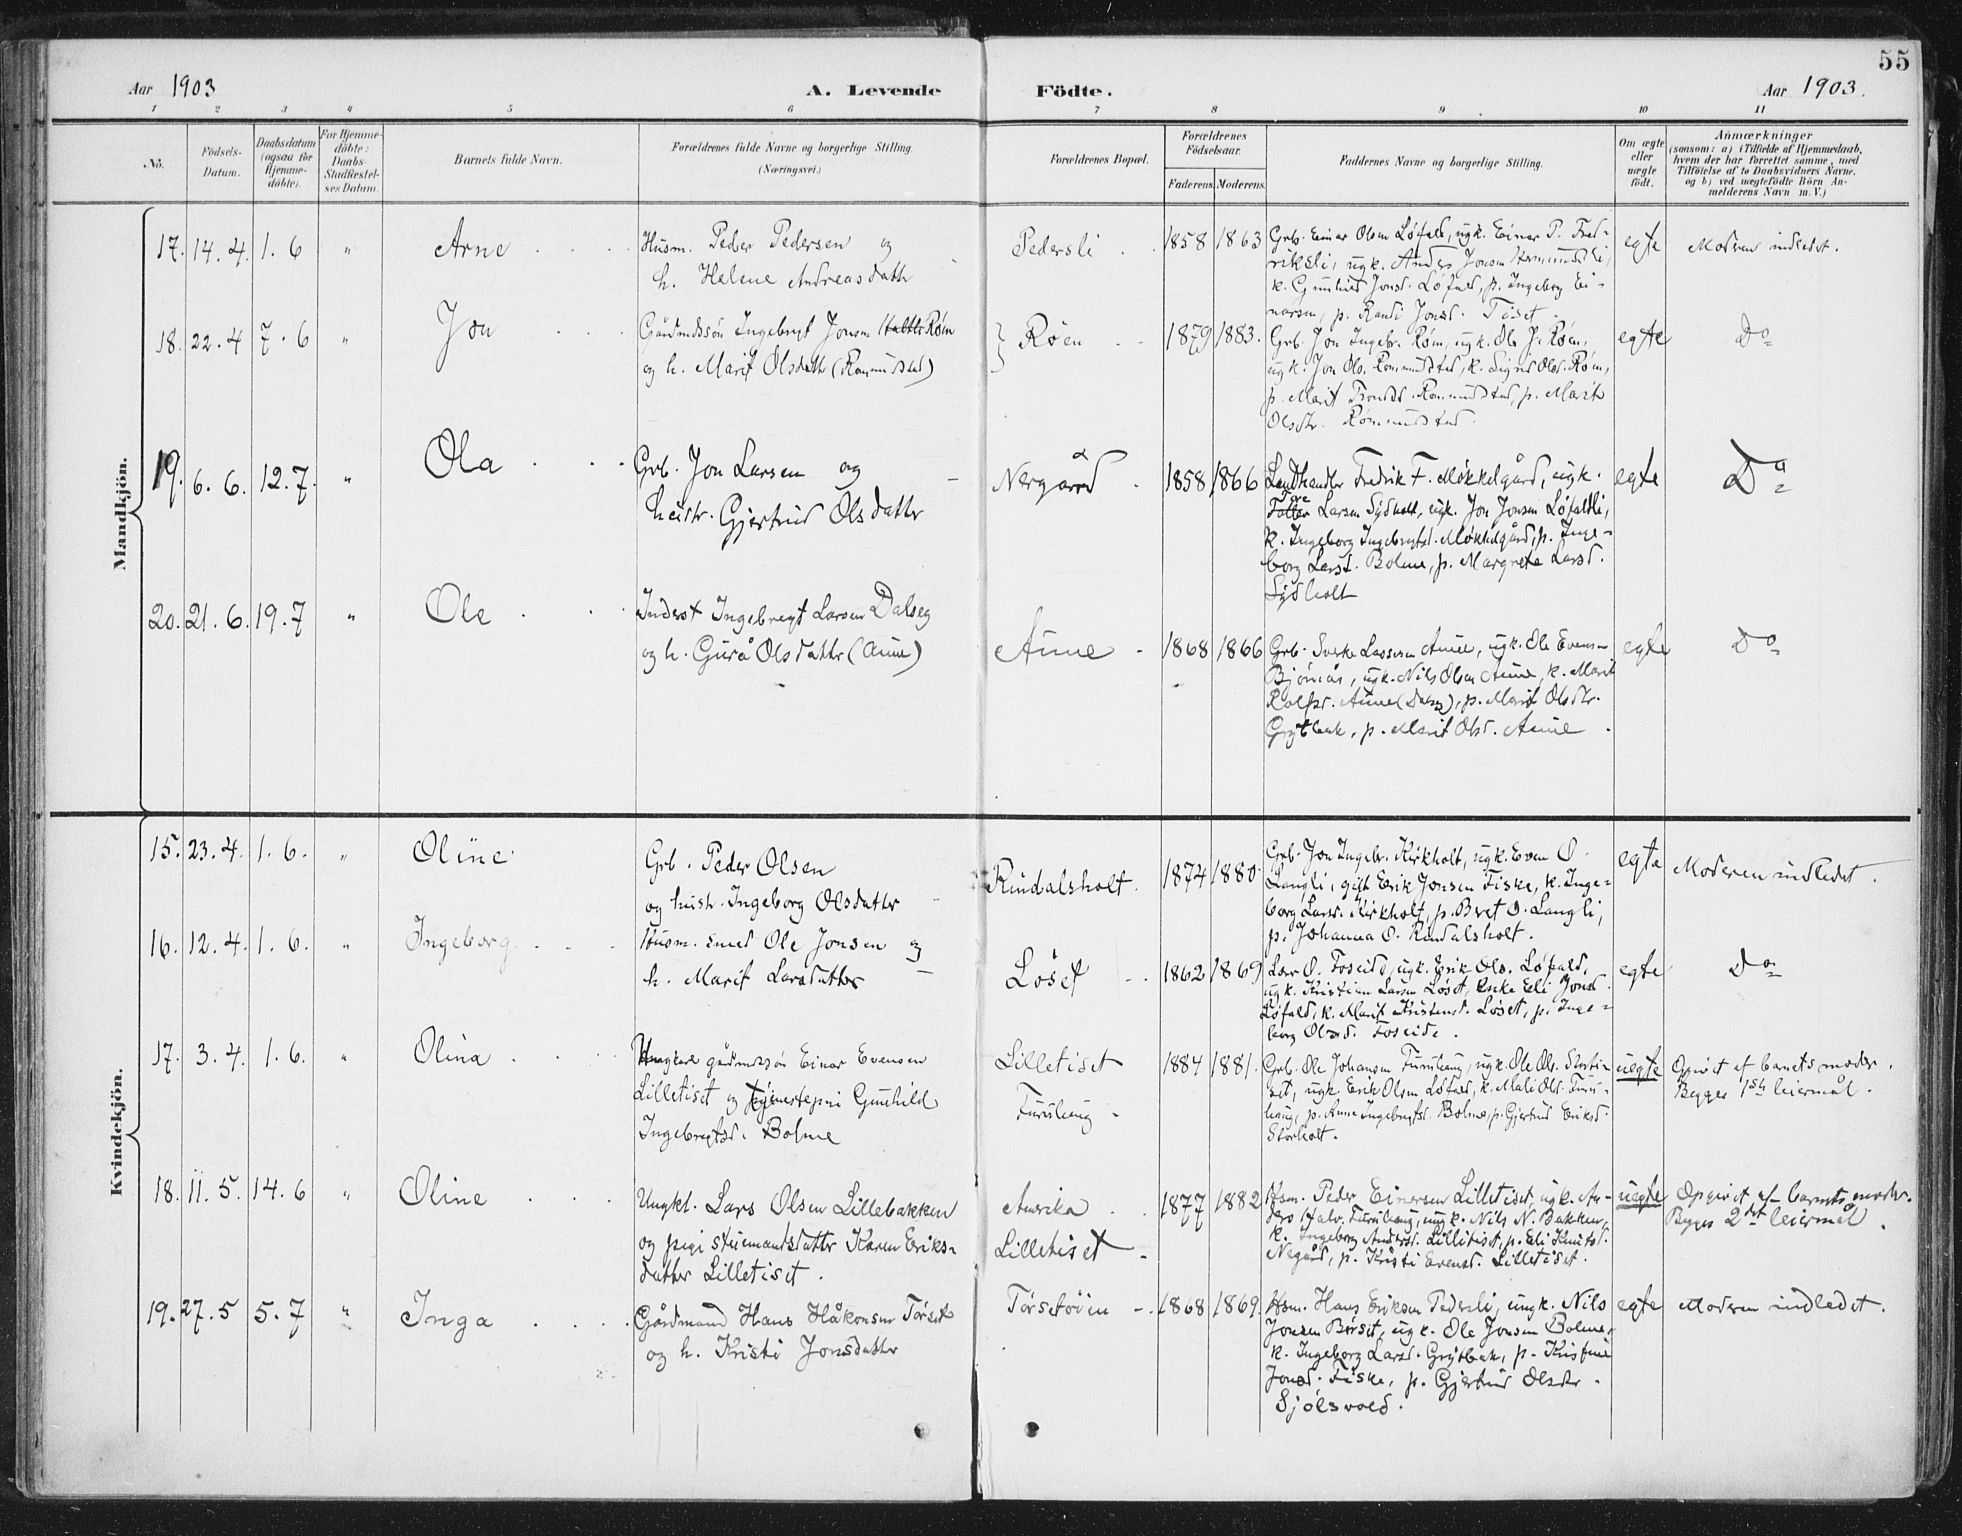 55
Aar 1903
A. Levende
Födte.
Aar 1903.
1 2 3 4 5 6 7 8 9 10 11
No.
Födsels-
Datum.
Daabsdatum
(ogsaa for
Hjemme-
döbte).
For Hjemme-
döbte:
Daabs-
Stadfæstel-
ses Datum.
Barnets fulde Navn.
Forældrenes fulde Navne og borgerlige Stilling.
(Næringsvei.)
Forældrenes Bopæl.
Forældrenes
Födselsaar.
Faderens. Moderens.
Faddernes Navne og borgerlige Stilling.
Om ægte
eller
uægte
födt.
Anmærkninger
(saasom: a) i Tilfælde af Hjemmedaab,
hvem der har forrettet samme, med
Tilföielse af to Daabsvidners Navne.
og b) ved uægtefödte Börn An-
melderens Navn m. V.)
Mandkjön.
17. 14.4. 1.6 " Arne
Husm. Peder Pedersen og
h. Helene Andreasdattr
Pedersli
1858 1863
Grb. Einar Olsen Løfald, ugk. Einar P. Fred-
riksli, ugk. Anders Jonsen
k. Gunhild Jonsd. Løfald, p. Ingeborg Ei-
narsen, p. Randi Jonsd. Tiset
egte
Moderen indledet.
18. 22.4 7.6 " Jon
Gårdmdssøn Ingebrigt Jonsen Røen
og h. Marit Olsdattr (Romundstad)
Røen
1879 1883.
Grb. Jon Ingebr. Røen, ugk. Ole J. Røen,
ugk. Jon Ols. Rommundstad, k. Sigrid Olsd. Røen,
p. Marit Trondsd. Rommundstad, p. Marit
Olsdtr. Rommundstad.
egte
Do
19. 6.6. 12.7. " Ola
Grb. Jon Larsen og
hustr. Gjertrud Olsdatter
Nergård
1858 1866
Landhandler Fredrik F. Møkkelgård, ugk.
Tore Larsen Sydholt, ugk. Jon Jonsen Løfaldli,
k. Ingeborg Ingebrigtsd. Møkkelgård, p. Inge-
borg Larsd. Bolme, p. Margrete Larsd.
Sydholt
egte
Do
20. 21.6. 19.7 " Ole
Inderst Ingebregt Larsen Dalseg
og h. Gurå Olsdattr (Aune)
Aune
1868 1866
Grb. Sverke Lassesen Aune, ugk. Ole Evensen
Bjørnås, ugk. Nils Olsen Aune, k. Marit
Rolfsd. Aune (Dalseg), p. Marit Olsdtr.
Grytbak, p. Marit Olsd. Aune
egte
Do
Kvindekjön.
15. 23.4. 1.6. " Oline
Grb. Peder Olsen
og hustr. Ingeborg Olsdatter
Rindalsholt.
1874 1880
Grb. Jon Ingebr. Kirkholt, ugk. Even O.
Langli, gift Erik Jonsen Fiske, k. Inge-
borg Larsd. Kirkholt, p. Beret O. Langli,
p. Johanna O. Rindalsholt.
egte
Moderen indledet.
16. 12.4. 1.6. " Ingeborg
Husm. smed Ole Jonsen og
h. Marit Larsdatter
Løset
1862 1869
Lars O. Foseide, ugk. Erik Ols. Løfald,
ugk. Kristian Larsen Løset, Enke Eli Jonsd.
Løfald, k. Marit Kristensd. Løset, p. Inge-
borg Olsd. Foseide.
egte
Do
17. 3.4. 1.6. " Olina
Ungkarl gårdmdssøn Einar Evensen
Lilletiset og tjenestepi Gunhild
Ingebrigtsd. Bolme
Lilletiset
Furuhaug
1884 1881.
Grb. Ole Johansen Furuhaug, ugk. Ole Ols.
set, ugk. Erik Olsen Løfald, k. Mali Ols. Furu-
haug, p. Anne Ingebrigtsd. Bolme, p. Gjertrud Eriksd.
Storholt.
uegte
Opgivet af barnets moder.
Begges 1ste leiermål.
18. 11.5. 14.6 " Oline
Ungkl. Lars Olsen Lillebakken
og pige stuemandsdatter Karen Eriks-
datter Lilletiset.
Amerika
Lilletiset
1877 1882
Hsm. Peder Einarsen Lilletiset, ugk. An-
ders Halv. Furuhaug, ungk. Nils N. Bakken,
k. Ingeborg Andersd. Lilletiset, p. Eli Knutsd.
Negård, p. Kristi Evensd. Lilletiset.
uegte
Opgivet af barnets moder.
Begges 2det leiermål.
19. 27.5 5.7 " Inga
Gårdmand Hans Håkonsen Tørset
og h. Kristi Jonsdatter
Tørsetøien
1868 1869.
Hsm. Hans Eriksen Pedersli, ungk. Nils
Jonsen Børset, ugk. Ole Jonsen Bolme,
k. Ingeborg Larsd. Grytbak, p. Kristine
Jonsd. Fiske, p. Gjertrud Olsdtr.
Sjølsvold.
egte
Moderen indledet.